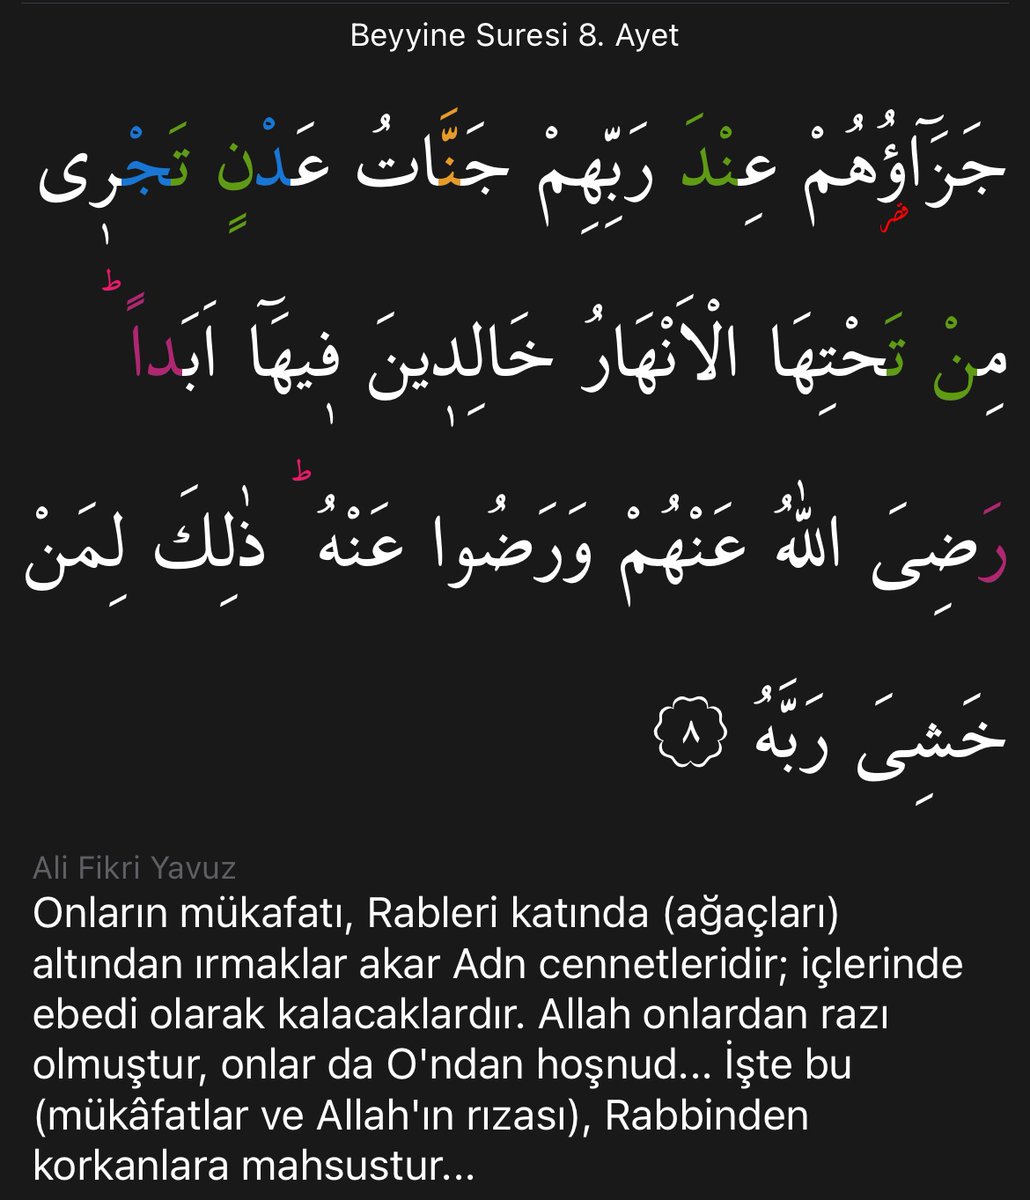 Beyyine Suresi 8. Ayet
جَزَٓاؤُ۬هُمْ عِنْدَ رَبِّهِمْ جَنَّاتُ عَدْنٍ تَجْر۪ى
قصر
مِنْ تَحْتِهَا الْاَنْهَارُ خَالِد۪ينَ ف۪يهَٓا اَبَداًؕ
رَضِىَ اللّٰهُ عَنْهُمْ وَرَضُوا عَنْهُؕ ذٰلِكَ لِمَنْ
خَشِىَ رَبَّهُ ٨
Ali Fikri Yavuz
Onların mükafatı, Rableri katında (ağaçları)
altından ırmaklar akar Adn cennetleridir; içlerinde
ebedi olarak kalacaklardır. Allah onlardan razı
olmuştur, onlar da O'ndan hoşnud... İşte bu
(mükâfatlar ve Allah'ın rızası), Rabbinden
korkanlara mahsustur...